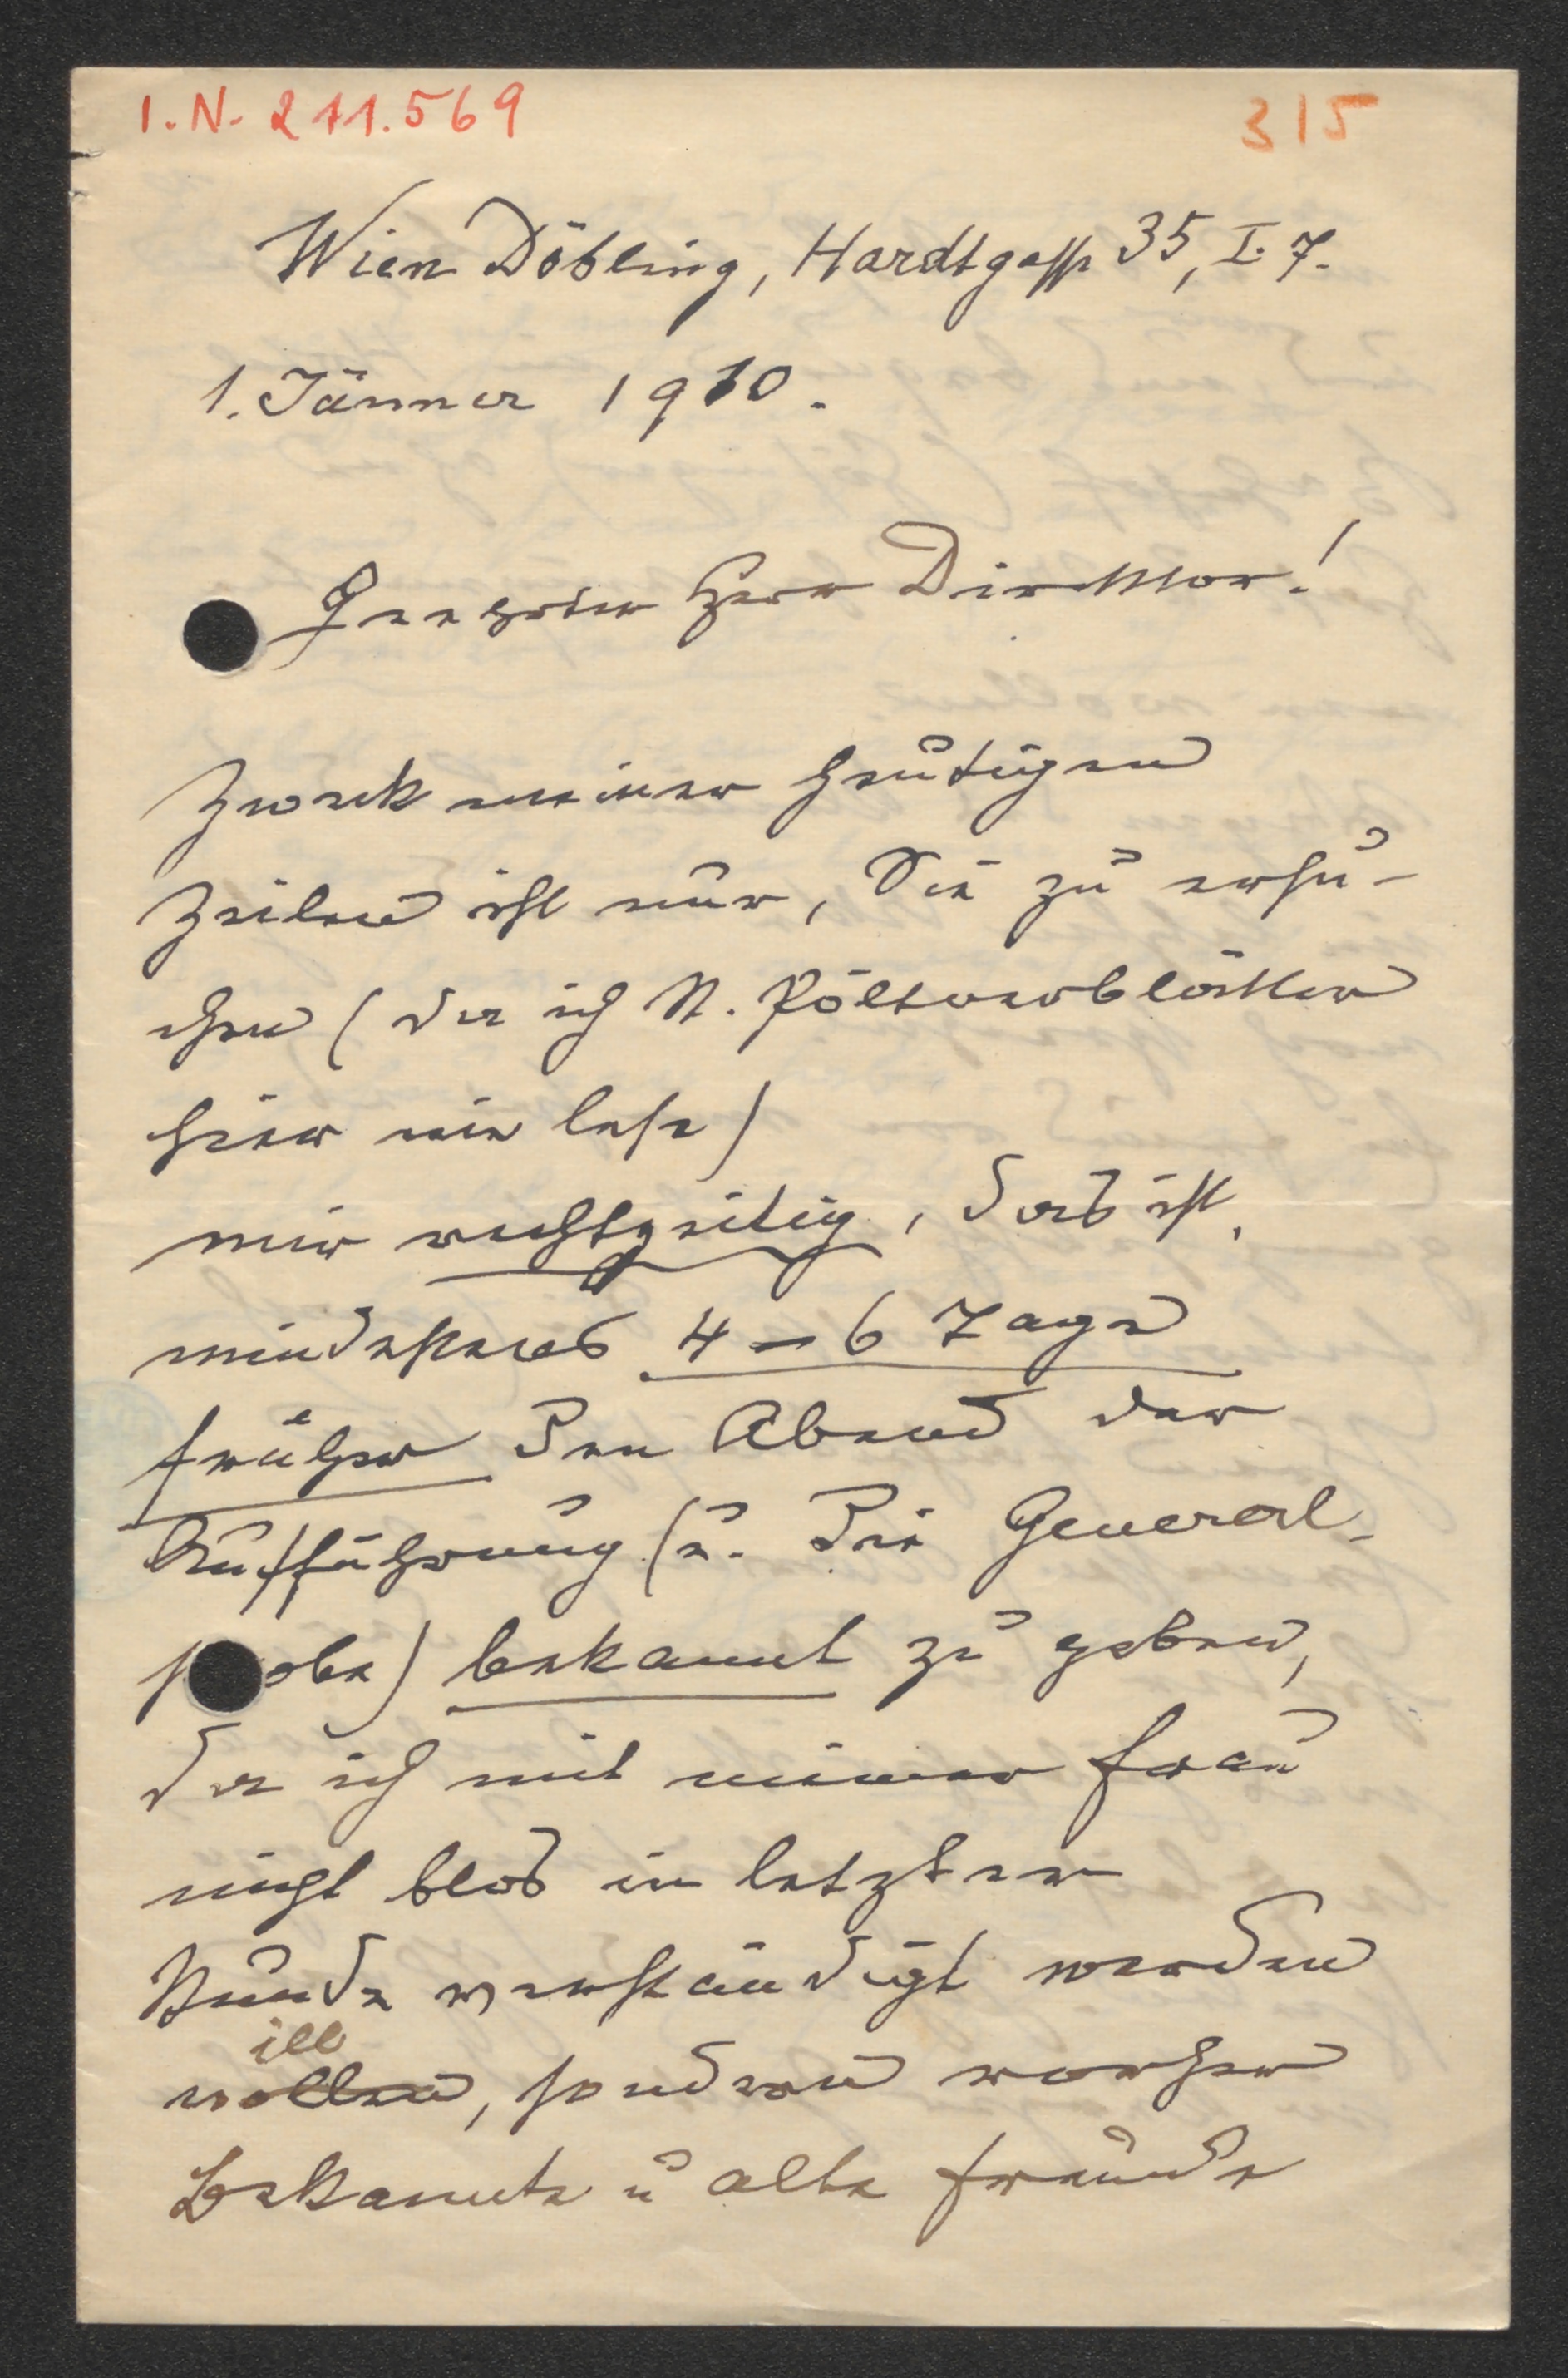 I.N. 211.569
315
Wien Döbling, Hardtgasse 35, I. 7.
1. Jänner 1910.
Geehrter Herr Direktor!
Zweck meiner heutigen
Zeilen ist nur, Sie zu ersu-
chen (da ich St. Pöltnerblätter
hier nie lese)
mir rechtzeitig, das ist,
mindestens 4–6 Tage
früher den Abend der
Aufführung (u. die General-
probe) bekannt zu geben,
da ich mit meiner Frau
nicht blos in letzter
Stunde verständigt werden
ill
wollen, sondern vorher
Bekannte u alte Freunde